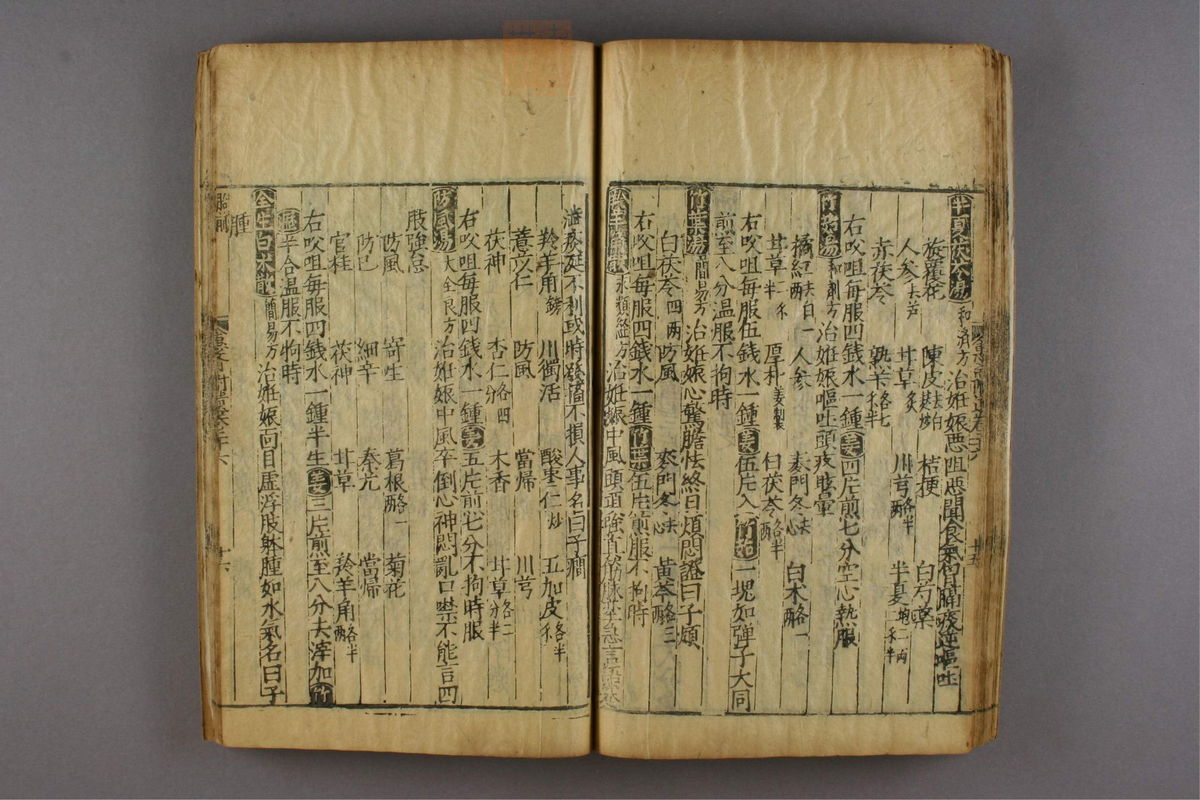 半夏茯苓湯 和濟方 治妊娠惡阻惡聞食氣胷膈痰逆嘔吐
旋覆花 陳皮 桔梗 白芍藥
人參去芦 甘草炙 川芎各半兩 半夏
赤茯苓 熟苄各七錢半
右㕮咀每服四錢水一鍾姜四片煎七分空心熱服
竹茹湯 和劑方 治妊娠嘔吐頭疼眩暈
橘紅去白一兩 人參 麥門冬去心 白朮各一兩
甘草 厚朴姜製 白茯苓各半兩
右㕮咀每服伍錢水一鍾姜伍片入竹茹一塊如弹子大同
煎至八分温服不拘時
竹葉湯 簡易方 治妊娠心驚膽怯終日煩悶證曰子煩
白茯苓四兩 防風 麥門冬去心 黃芩各三兩
右㕮咀每服四錢水一鍾竹葉伍片煎服不拘時
羚羊角散 治妊娠中風頭項強直筋脉攣急言語蹇
澁痰涎不利或時發搐不損人事名曰子癎
羚羊角鎊 川獨活 酸枣仁炒 五加皮各半錢
薏苡仁 防風 當帰 川芎
茯神 杏仁各四分 木香 甘草各二分半
右㕮咀每服四錢水一鍾姜五片煎七分不拘時服
防風湯 大全良方 治妊娠中風卒倒心神悶亂口噤不能言四
肢強急
防風 寄生 葛根各一兩 菊花
防已 細辛 秦艽 當帰
官桂 茯神 甘草 羚羊角各半兩
右㕮咀每服四錢水一鍾半生姜三片煎至八分去滓加竹
瀝半合温服不拘時
全生白朮散 簡易方 治妊娠面目虛浮肢躰腫如水氣名曰子
腫
胎前